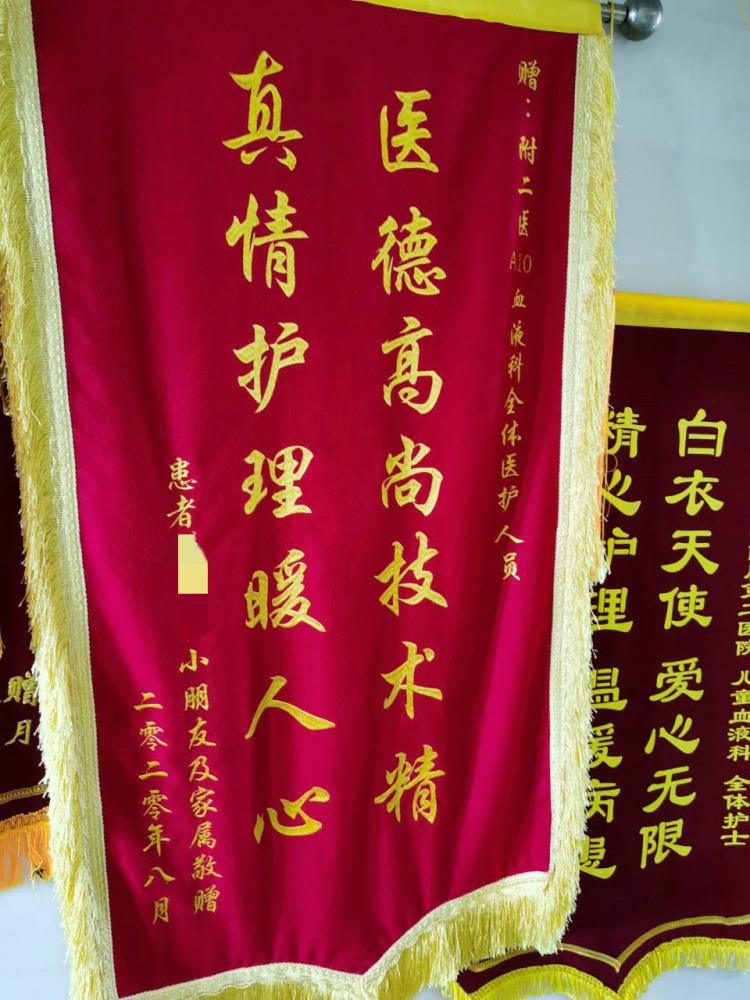 赠：附二医A10血液科全体医护人员
医德高尚技术精
真情护理暖人心
患者
小朋友及家属敬赠
二零二零年八月
二医院 儿童血液科 全体护士
白衣天使 爱心无限
精心护理 温暖病患
赠
月